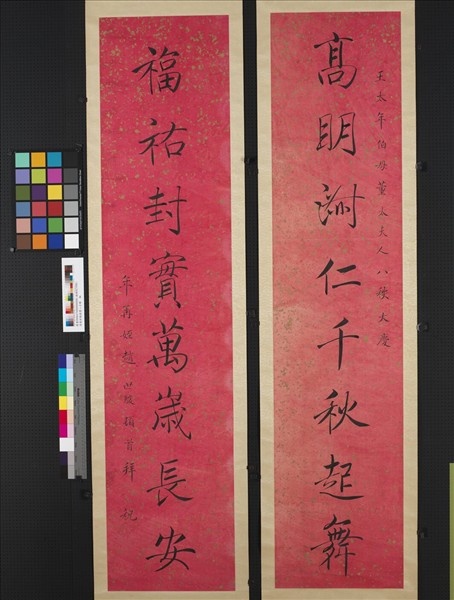 王太年伯母董太夫人八秩大慶
髙明仁千秋起舞
福祐封實萬歲長安
年再姪趙世駿頓首拜祝